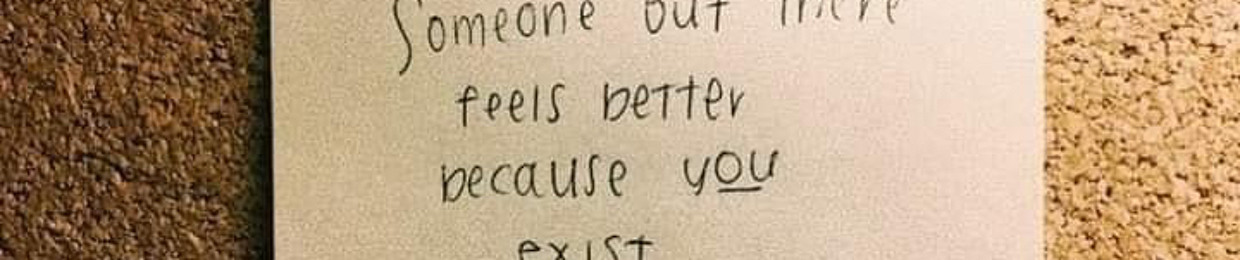 Someone out there
feels better
because you
exist